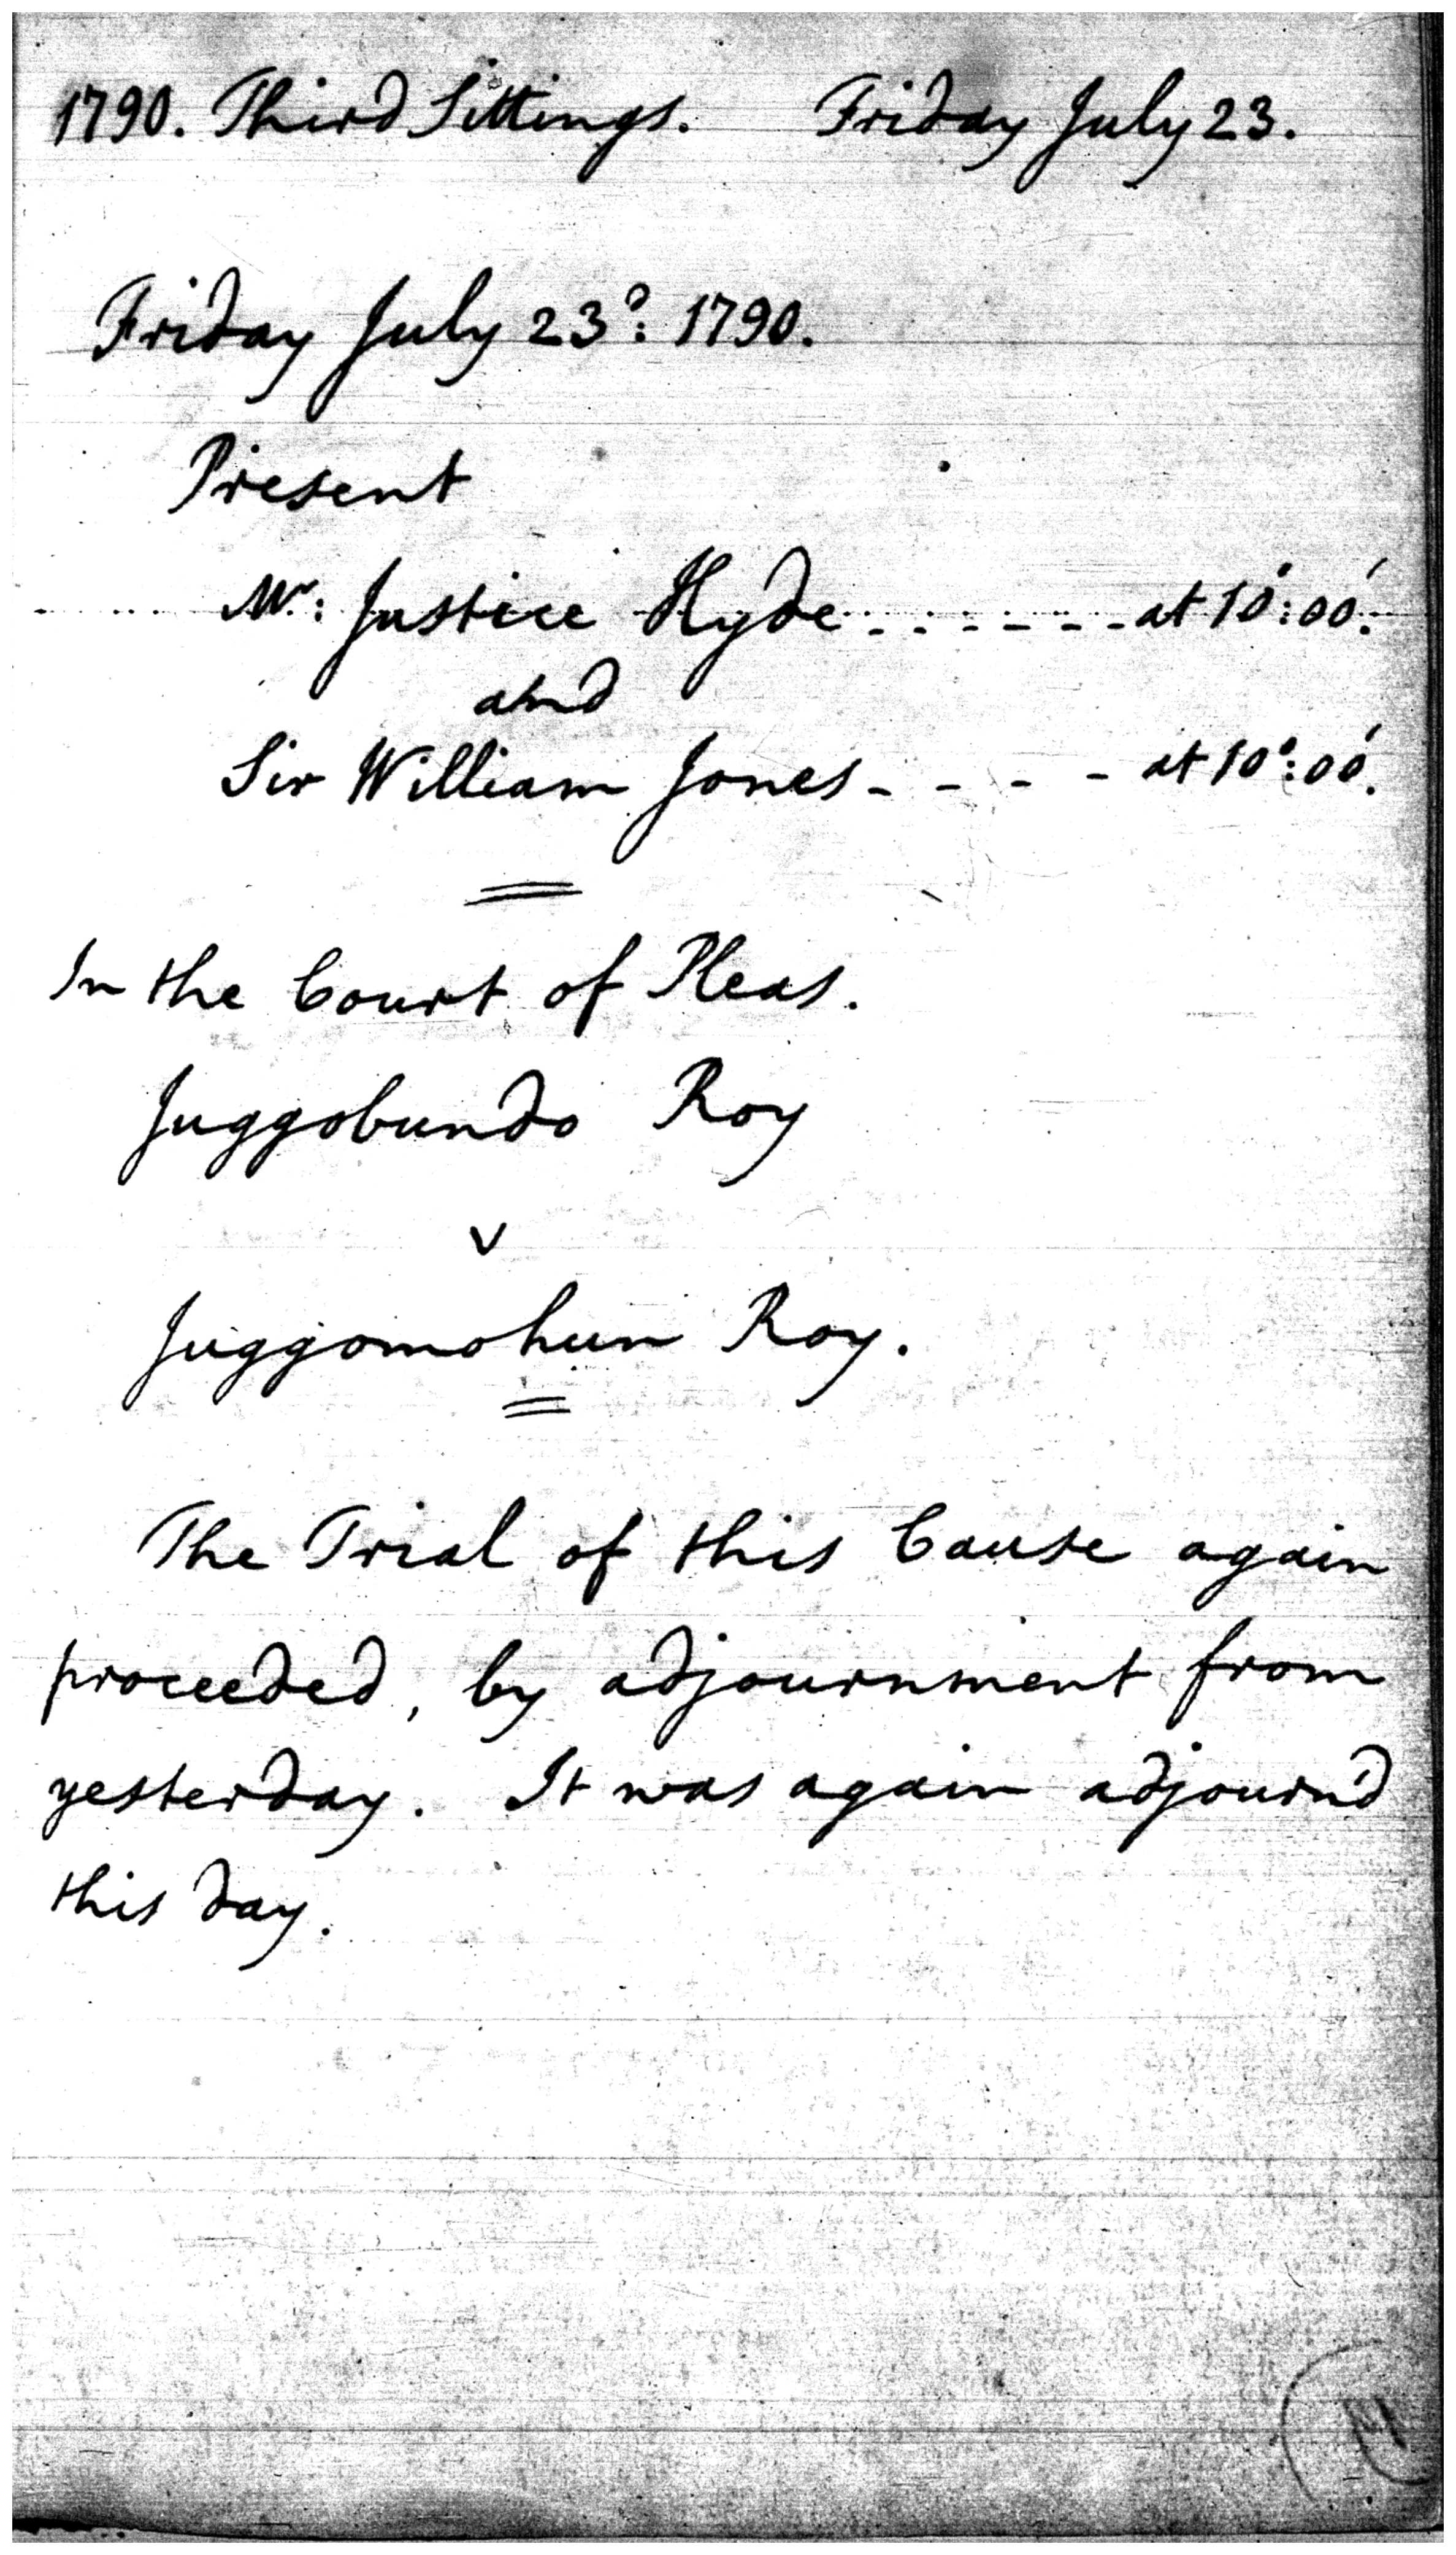 1790. Third Sittings. Friday July 23.
Friday July 23d: 1790.
Present
Mr: Justice Hyde . . - - - - at 10°:00'.
and
Sir William Jones - - - - at 10°:00'.
In the Court of Pleas.
Juggobundo Roy
v
Juggomohun Roy.
The Trial of this Cause again
proceeded, by adjournment from
yesterday. It was again adjourn'd
this day.